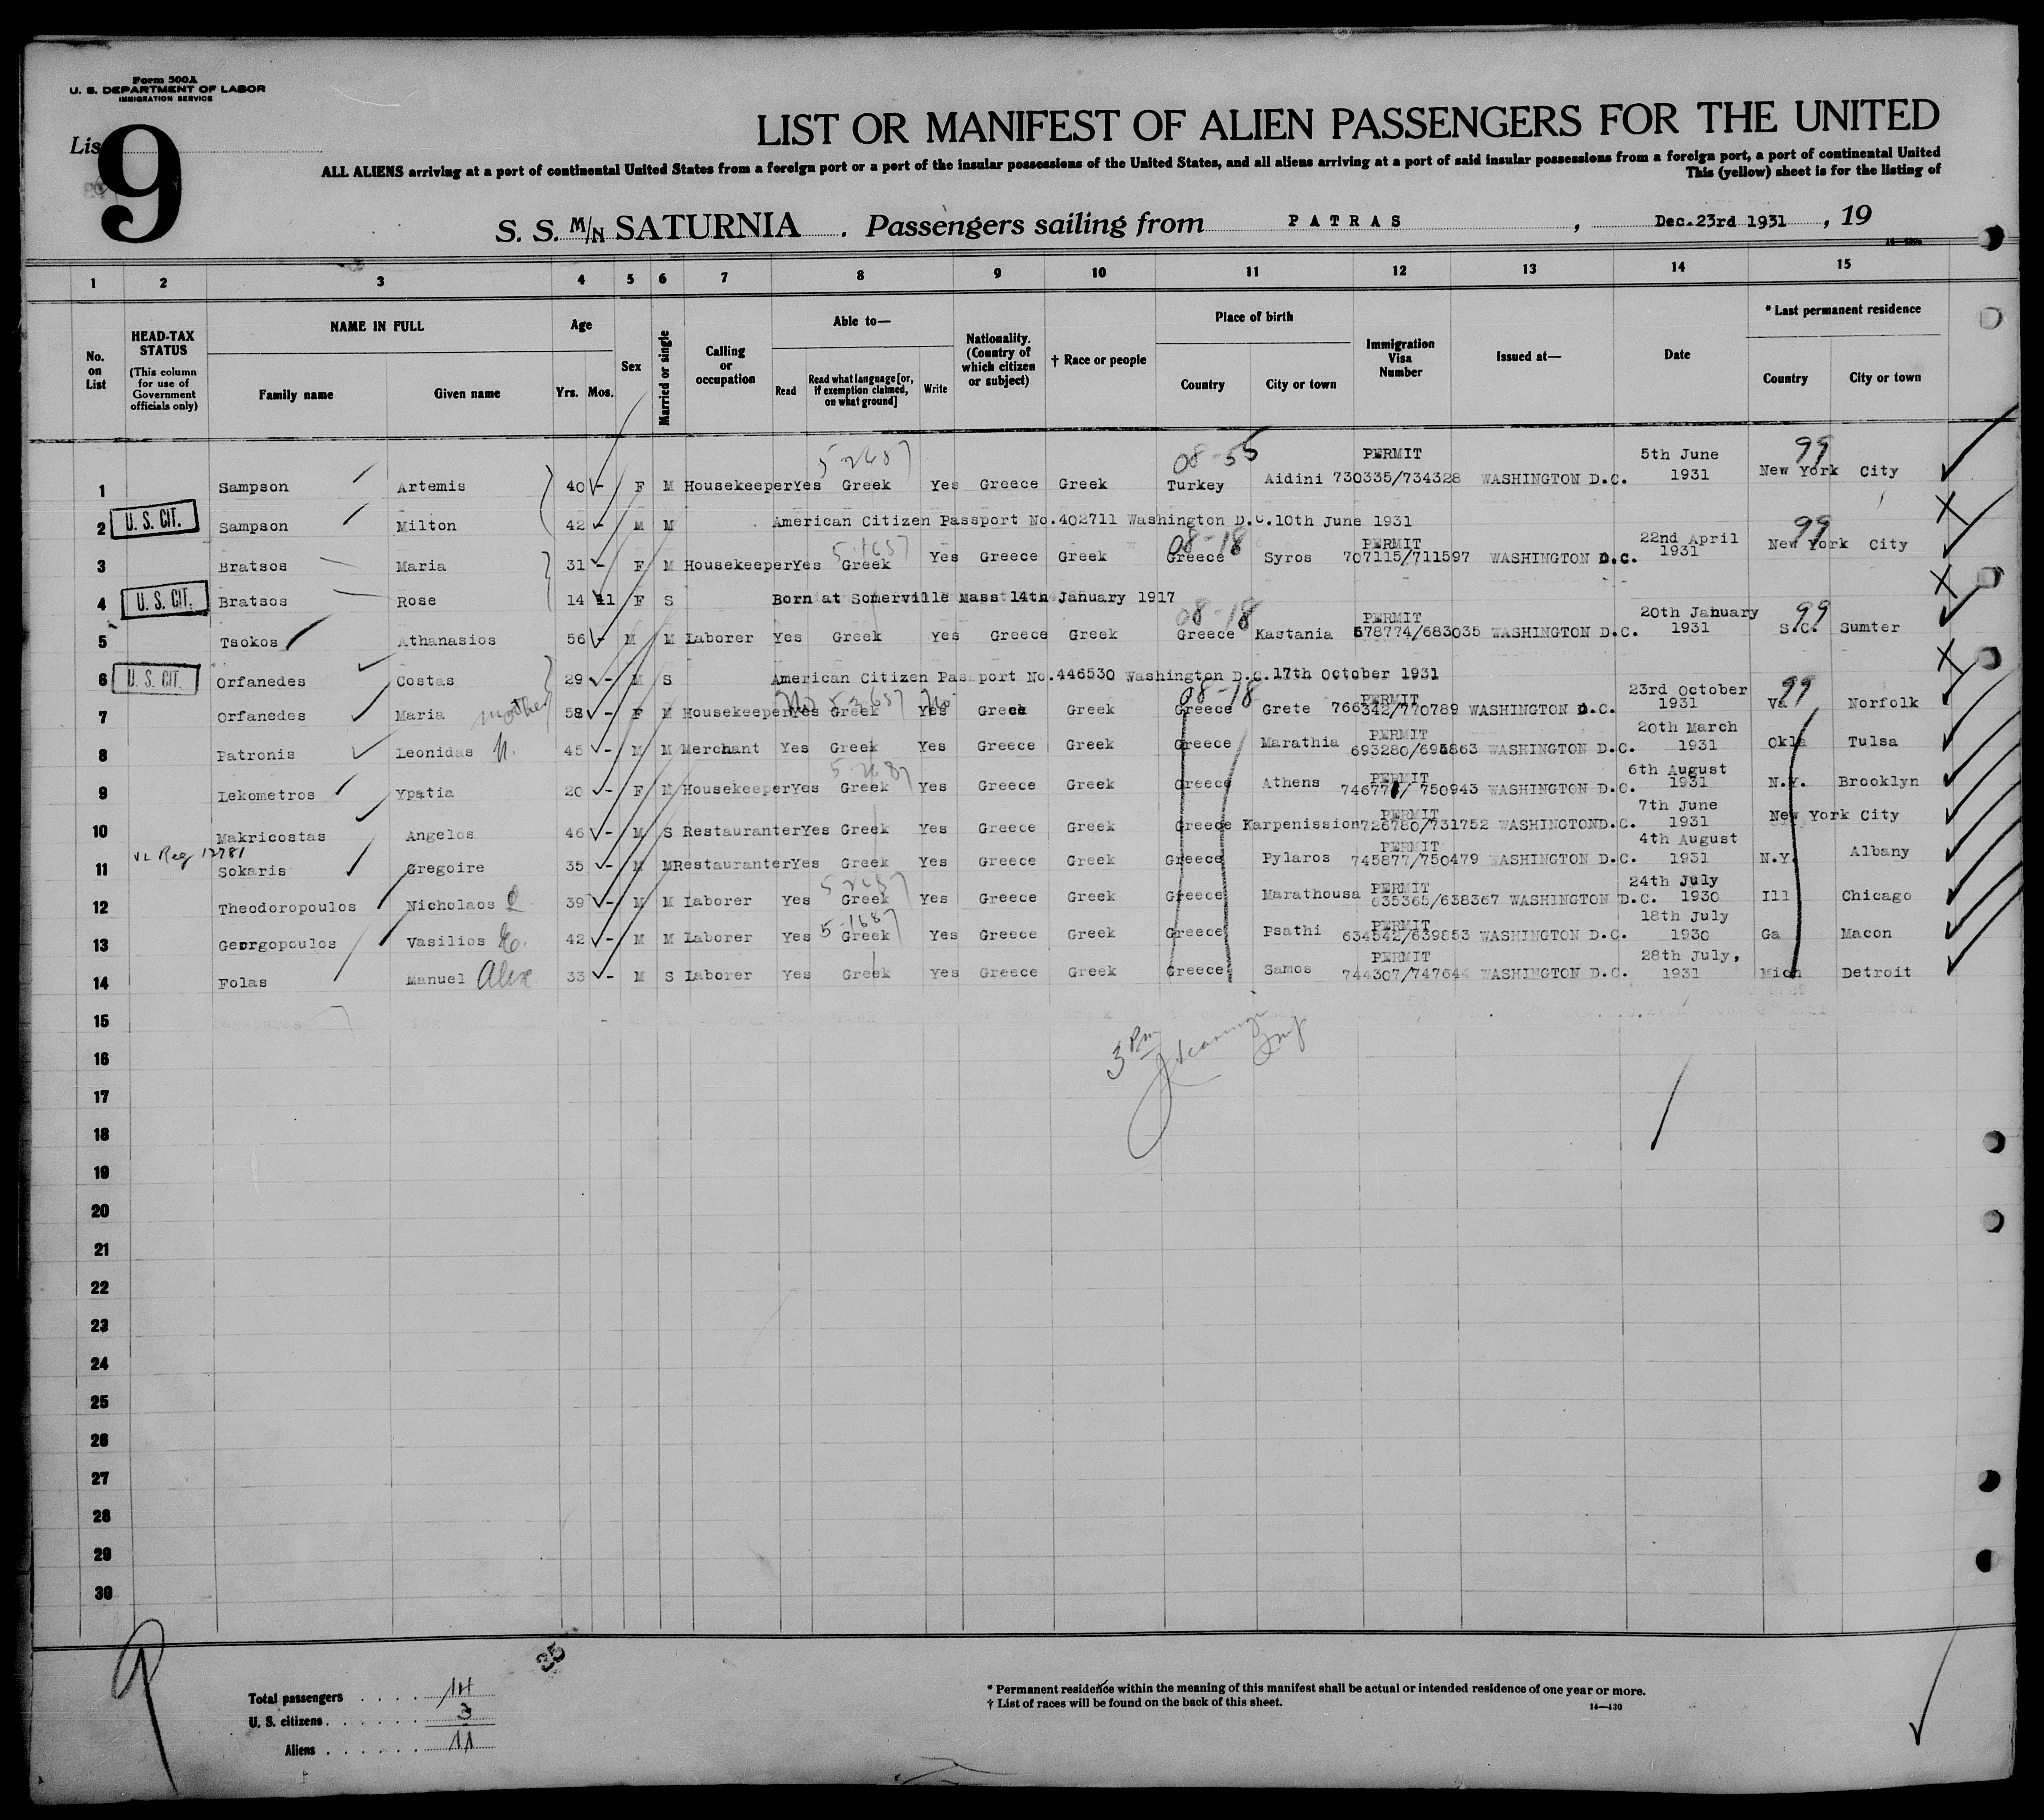 Form 500A
U. S. DEPARTMENT OF LABOR
IMMIGRATION SERVICE
Lis 9
LIST OR MANIFEST OF ALIEN PASSENGERS FOR THE UNITED
ALL ALIENS arriving at a port of continental United States from a foreign port or a port of the insular possessions of the United States, and all aliens arriving at a port of said insular possessions from a foreign port, a port of continental United
This (yellow) sheet is for the listing of
S. S. M/N SATURNIA . Passengers sailing from PATRAS , Dec.23rd 1931 , 19
1 2 3 4 5 6 7 8 9 10 11 12 13 14 15
No. on List
HEAD-TAX STATUS
(This column for use of Government officials only)
NAME IN FULL
Family name Given name
Age
Yrs. Mos.
Sex
Married or single
Calling or occupation
Able to—
Read
Read what language [or, if exemption claimed, on what ground]
Write
Nationality. (Country of which citizen or subject)
† Race or people
Place of birth
Country City or town
Immigration Visa Number
Issued at—
Date
* Last permanent residence
Country City or town
5-2687 08-55 PERMIT 5th June 99
1 Sampson Artemis 40 - F M Housekeeper Yes Greek Yes Greece Greek Turkey Aidini 730335/734328 WASHINGTON D.C. 1931 New York City
2 U. S. CIT. Sampson Milton 42 - M M American Citizen Passport No.402711 Washington D.C.10th June 1931
5-1687 08-18 PERMIT 22nd April 99
3 Bratsos Maria 31 - F M Housekeeper Yes Greek Yes Greece Greek Greece Syros 707115/711597 WASHINGTON D.C. 1931 New York City
4 U. S. CIT. Bratsos Rose 14 11 F S Born at Somerville Mass 14th January 1917
08-18 PERMIT 20th January 99
5 Tsokos Athanasios 56 - M M Laborer Yes Greek Yes Greece Greek Greece Kastania 678774/683035 WASHINGTON D.C. 1931 S.C. Sumter
6 U. S. CIT. Orfanedes Costas 29 - M S American Citizen Passport No.446530 Washington D.C.17th October 1931
No No 08-18 PERMIT 23rd October 99
7 Orfanedes Maria mother 58 - F M Housekeeper Yes Greek Yes Greece Greek Greece Grete 766342/770789 WASHINGTON D.C. 1931 Va Norfolk
PERMIT 20th March
8 Patronis Leonidas N. 45 - M M Merchant Yes Greek Yes Greece Greek Greece Marathia 693280/695863 WASHINGTON D.C. 1931 Okla Tulsa
5-2687 PERMIT 6th August
9 Lekometros Ypatia 20 - F M Housekeeper Yes Greek Yes Greece Greek Greece Athens 746771/ 750943 WASHINGTON D.C. 1931 N.Y. Brooklyn
PERMIT 7th June
10 Makricostas Angelos 46 - M S Restauranter Yes Greek Yes Greece Greek Greece Karpenission 726780/731752 WASHINGTOND.C. 1931 New York City
VL Reg 12781 PERMIT 4th August
11 Sokaris Gregoire 35 - M M Restauranter Yes Greek Yes Greece Greek Greece Pylaros 745877/750479 WASHINGTON D.C. 1931 N.Y. Albany
5-2687 PERMIT 24th July
12 Theodoropoulos Nicholaos 39 - M M Laborer Yes Greek Yes Greece Greek Greece Marathousa 635365/638367 WASHINGTON D.C. 1930 Ill Chicago
5-1687 PERMIT 18th July
13 Georgopoulos Vasilios 42 - M M Laborer Yes Greek Yes Greece Greek Greece Psathi 634542/639853 WASHINGTON D.C. 1930 Ga Macon
PERMIT 28th July,
14 Folas Manuel Alex 33 - M S Laborer Yes Greek Yes Greece Greek Greece Samos 744307/747644 WASHINGTON D.C. 1931 Mich Detroit
15
16
3 Pm
17
18
19
20
21
22
23
24
25
26
27
28
29
30
9
35
Total passengers . . . . 14
U. S. citizens . . . . . . 3
Aliens . . . . . . 11
* Permanent residence within the meaning of this manifest shall be actual or intended residence of one year or more.
† List of races will be found on the back of this sheet.
14—430